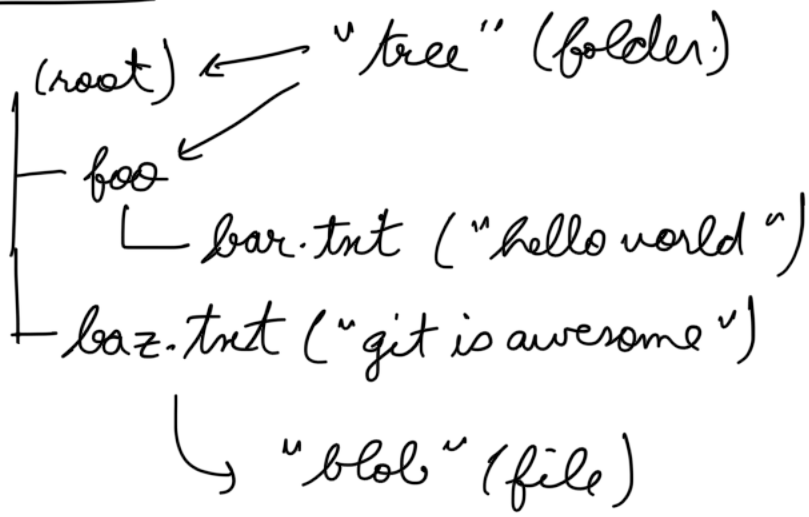 (root) "tree" (folder)
foo
bar.txt ("hello world")
baz.txt ("git is awesome")
"blob" (file)